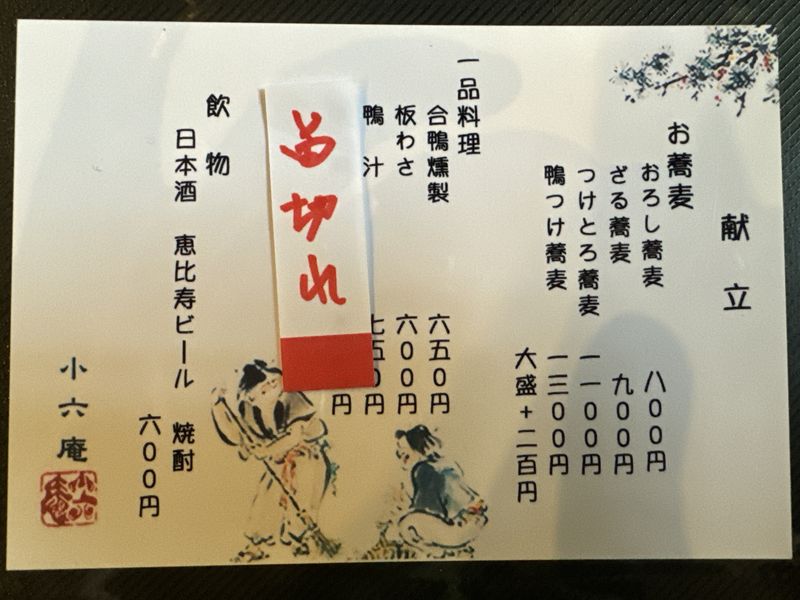 献立
お蕎麦
おろし蕎麦 八００円
ざる蕎麦 九００円
つけとろ蕎麦 一一００円
鴨つけ蕎麦 一三００円
大盛＋二百円
一品料理
合鴨燻製 六五０円
板わさ 六００円
鴨汁 七五０円
円
品切れ
飲物
日本酒 恵比寿ビール 焼酎
六００円
小六庵